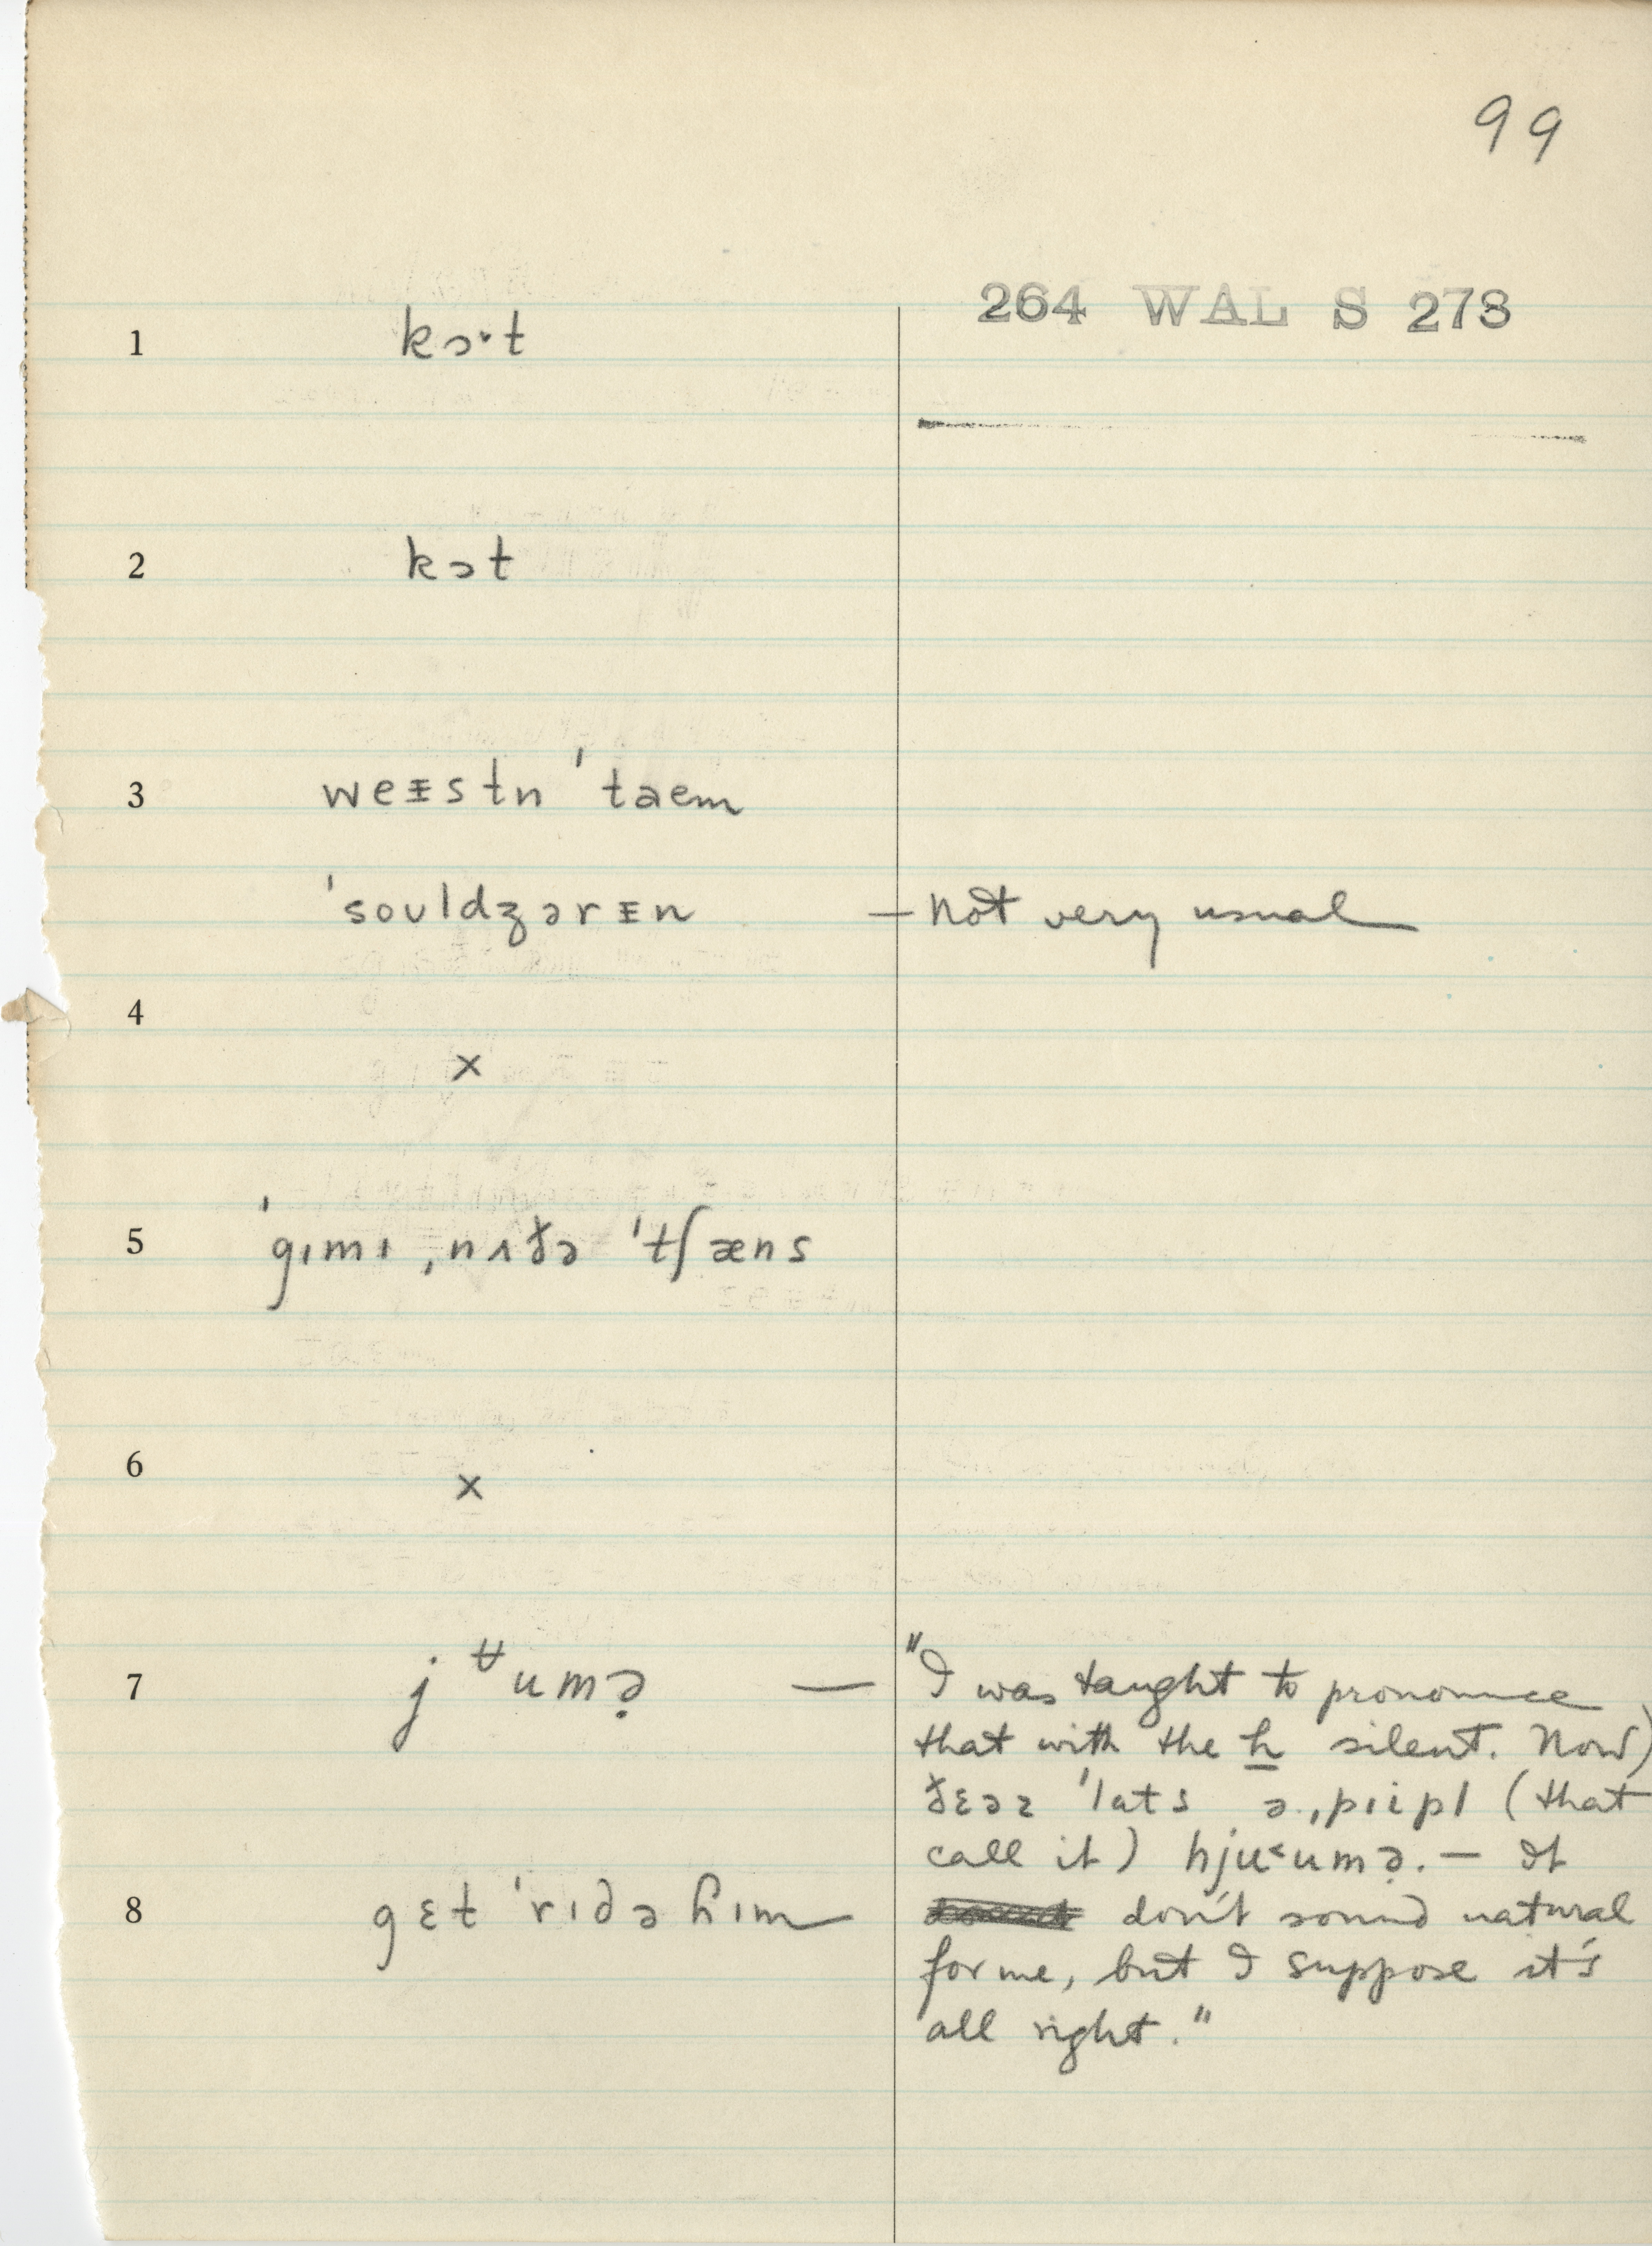 99
264 WAL S 273
1 kɔ˞t
2 kɔt
3 weᵻstn ˈtaem
ˈsouldʒərᵻn — not very usual
4
×
5 ˈgɪmɪ ˌnʌðə ˈtʃæns
6
×
7 jᶶumə̣ — "I was taught to pronounce
that with the h silent. Now)
ðɛəz ˈlɑts ə ˌpɪipl (that
call it) hjʉ˂umə̣. — It
8 gɛt ˈrɪdə ɦɪm don't sound natural
for me, but I suppose it's
all right."